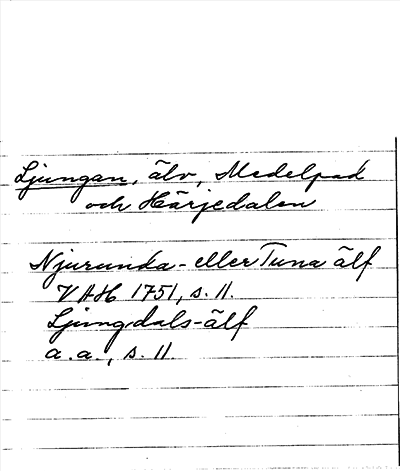 Ljungan, älv, Medelpad
och Härjedalen
Njurunda- eller Tuna älf
VAH 1751, s. 11.
Ljungdals-älf
a. a., s. 11.